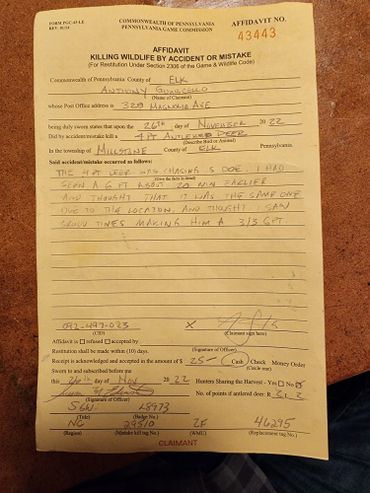 FORM PGC-43 LE COMMONWEALTH OF PENNSYLVANIA AFFIDAVIT NO.
REV. 8/14 PENNSYLVANIA GAME COMMISSION 43443
AFFIDAVIT
KILLING WILDLIFE BY ACCIDENT OR MISTAKE
(For Restitution Under Section 2306 of the Game & Wildlife Code)
Commonwealth of Pennsylvania County of ELK
ANTHONY
(Name of Claimant)
whose Post Office address is 329 MAGNOLIA AVE
being duly sworn states that upon the 26TH day of NOVEMBER 2022
Did by accident/mistake kill a 4 PT ANTLERED DEER
(Describe Bird or Animal)
In the township of MILLSTONE County of ELK Pennsylvania.
Said accident/mistake occurred as follows:
THE 4 PT DEER WAS CHASING 5 DOE. I HAD
(Give the facts in detail)
SEEN A 6 PT ABOUT 20 MIN EARLIER
AND THOUGHT THAT IT WAS THE SAME ONE
DUE TO THE LOCATION. AND THOUGHT I SAW
BROW TINES MAKING HIM A 3/3 6PT
092-497-023 X
(CID) (Claimant sign here)
Affidavit is refused accepted by
(Signature of Officer)
Restitution shall be made within (10) days.
Receipt is acknowledged and accepted in the amount of $ 25- Cash Check Money Order
(Circle one)
Sworn to and subscribed before me
this 26th day of Nov 2022 Hunters Sharing the Harvest - Yes No
(Signature of Officer) No. of points if antlered deer: R 2 L 2
SGW L8973
(Title) (Badge No.)
NC 29510 2F 46295
(Region) (Mistake kill tag No.) (WMU) (Replacement tag No.)
CLAIMANT